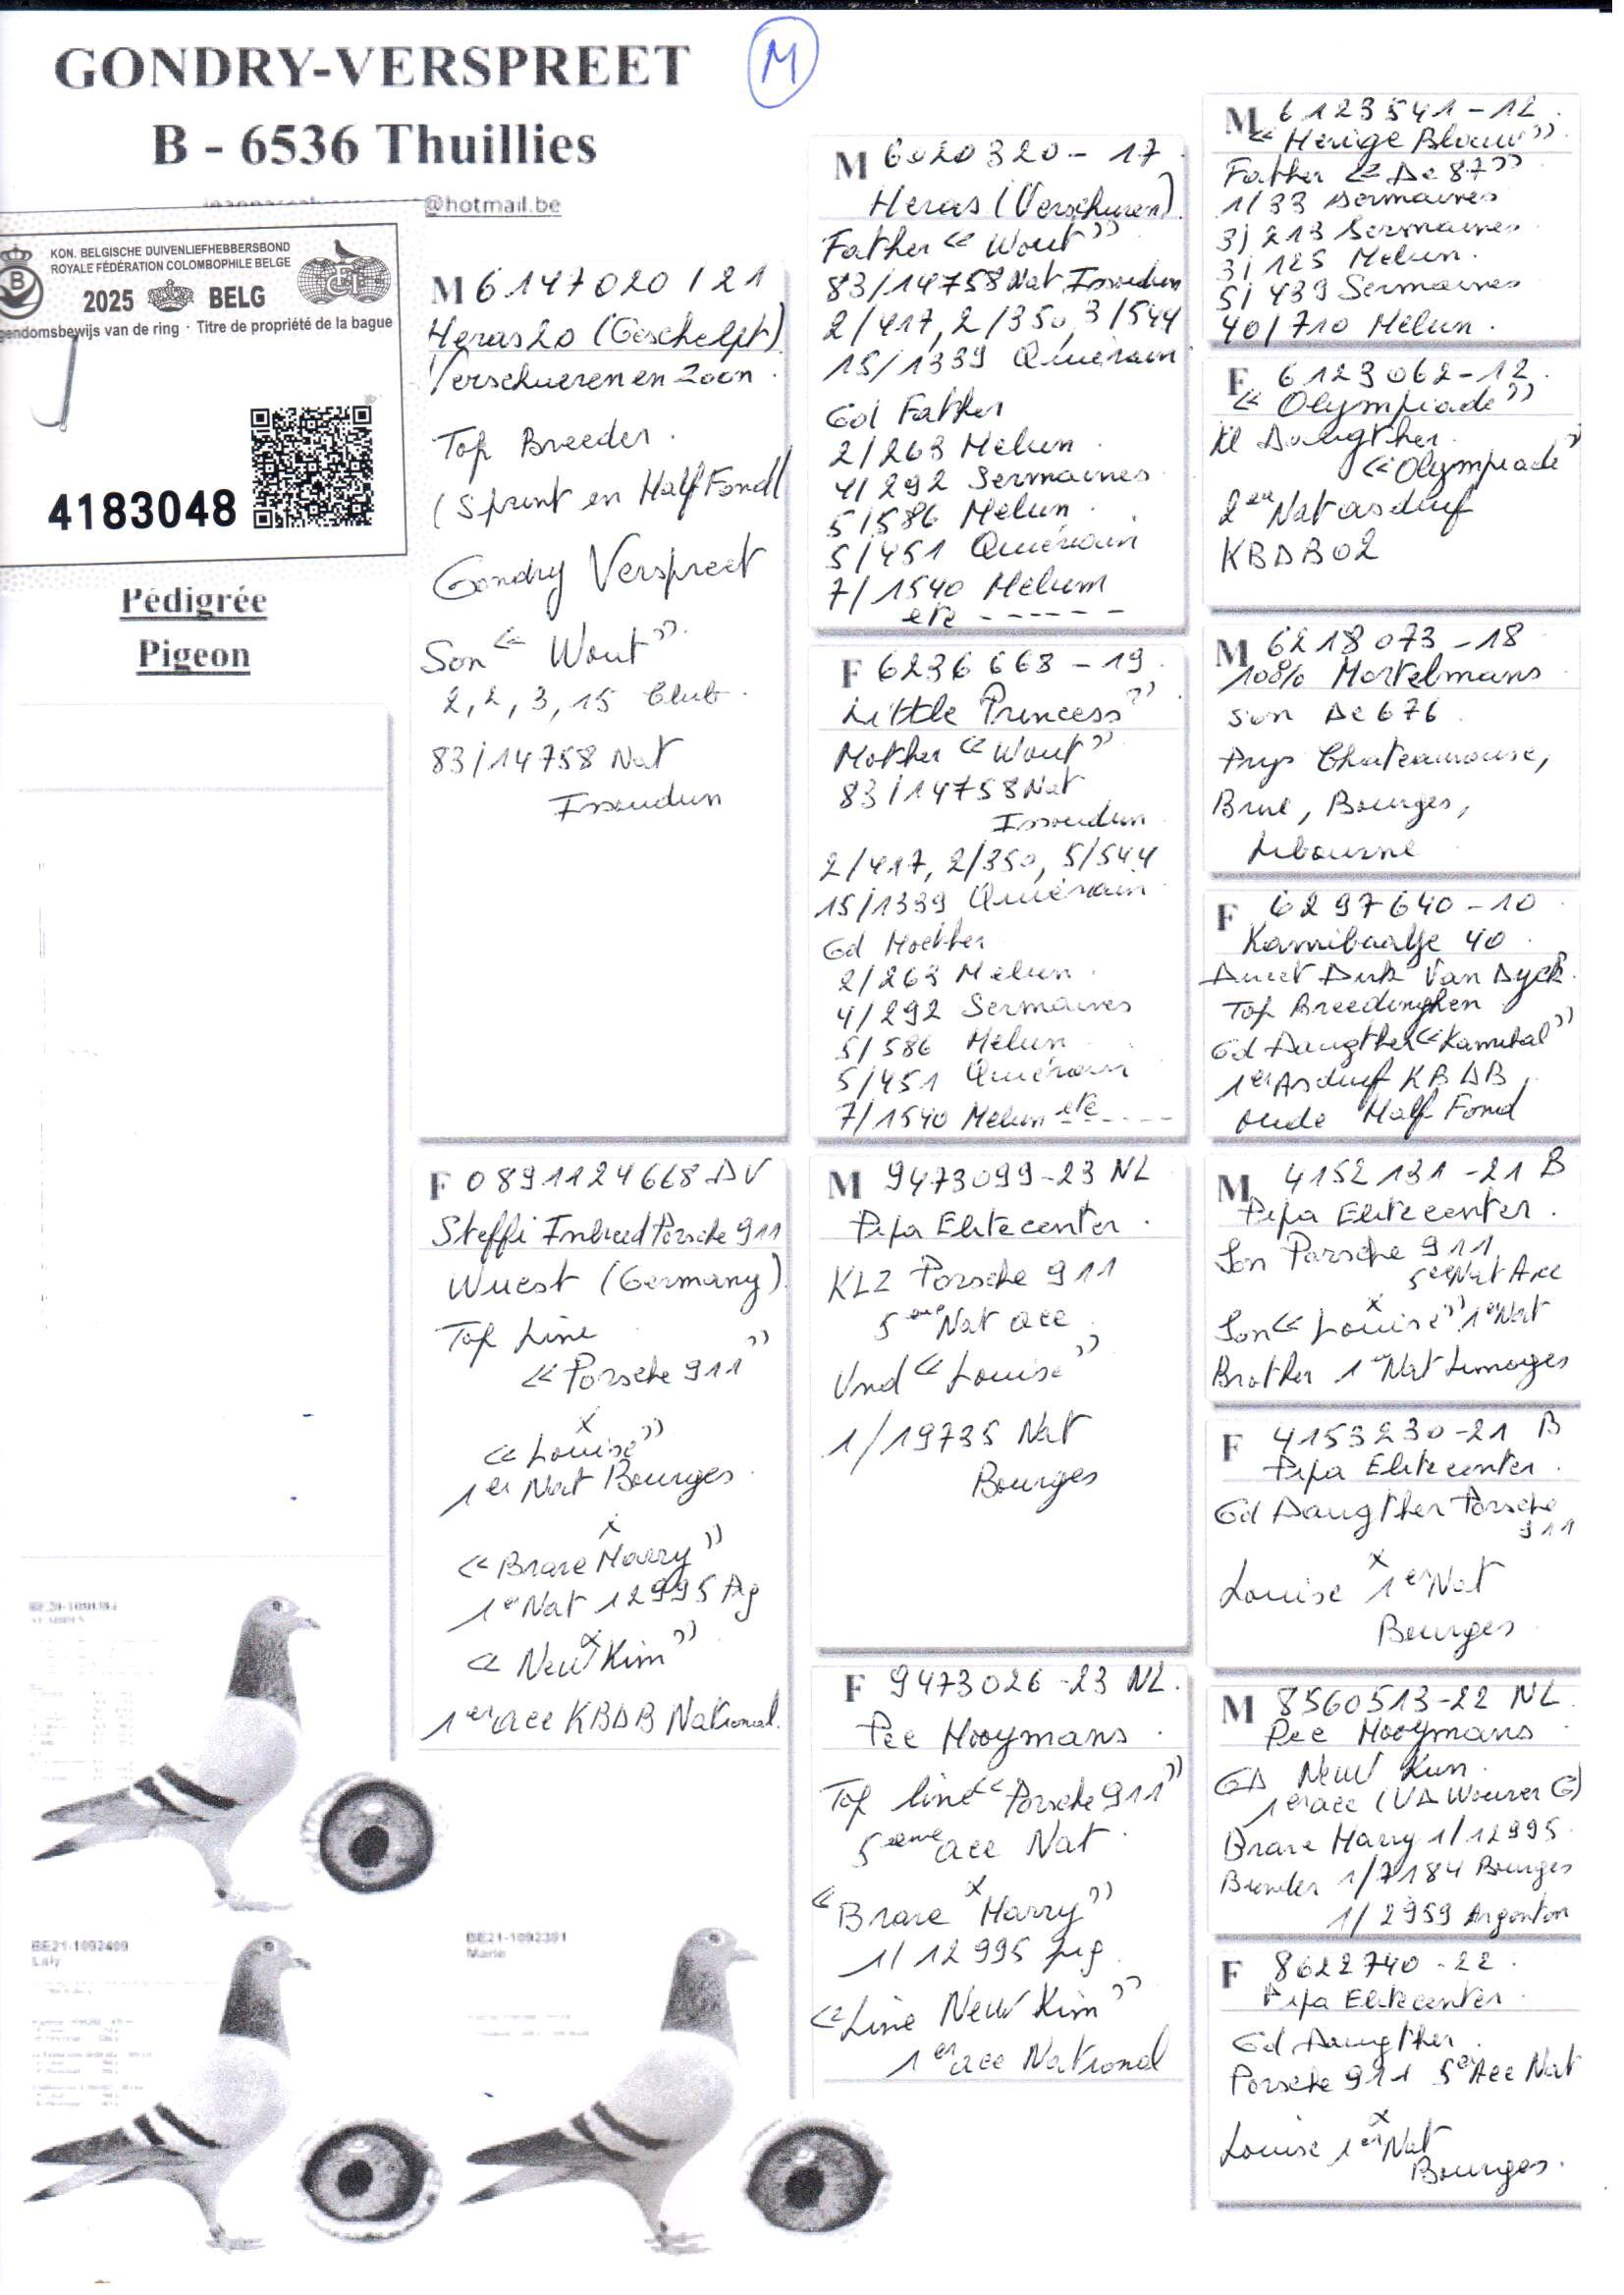 GONDRY-VERSPREET
M
B - 6536 Thuillies
@hotmail.be
KON. BELGISCHE DUIVENLIEFHEBBERSBOND
ROYALE FÉDÉRATION COLOMBOPHILE BELGE
2025 BELG
gendomsbewijs van de ring · Titre de propriété de la bague
4183048
Pédigrée
Pigeon
M 6147020 / 21
Heras 20 (Geschelpt)
Verschueren en Zoon
Top Breeder.
(Sprint en Half Fond)
Gondry Verspreet
Son « Wout »
2, 2, 3, 15 Club.
83/14758 Nat
Issoudun
F 0891124668 DV
Steffi Inbreed Porsche 911
Wuest (Germany)
Top Line
« Porsche 911 »
x
« Louise »
1er Nat Bourges.
x
« Brave Harry »
1er Nat 12995 Pig
x
« New Kim »
1er ace KBDB National.
M 6020320 - 17
Heras (Verschueren)
Father « Wout »
83/14758 Nat Issoudun
2/417, 2/350, 3/544
15/1339 Quiévrain
Gd Father
2/263 Melun.
4/292 Sermaines
5/586 Melun.
5/451 Quiévrain
7/1540 Melum
etc ------
F 6236668 - 19
Little Princess »
Mother « Wout »
83/14758 Nat
Issoudun
2/417, 2/350, 5/544
15/1339 Quiévrain
Gd Moether
2/263 Melun.
4/292 Sermaines
5/586 Melun
5/451 Quiévrain
7/1540 Melun etc -----
M 9473099-23 NL
Pipa Elitecenter.
KLZ Porsche 911
5eme Nat ace
Vnd « Louise »
1/19735 Nat
Bourges
F 9473026-23 NL.
Pee Hooymans.
Top line « Porsche 911 »
5eme ace Nat.
x
« Brave Harry »
1/12995 pig
« Line New Kim »
1er ace National
M 6123541-12
« Herige Blauw »
Father « De 87 »
1/33 Sermaines
3/213 Sermaines
3/125 Melun.
5/439 Sermaines
40/710 Melun.
F 6123062-12
« Olympiade »
Kl Daugther
« Olympiade »
2de Nat asduif
KBDB 02
M 6218073-18
100% Mortelmans
son De 676
Prijs Chateauroux,
Brive, Bourges,
Libourne
F 6297640-10
Kannibaaltje 40.
Direct Dirk Van Dyck.
Top Breedinghen
Gd Daugther « Kannibal »
1er Asduif KBDB
oude Half Fond
M 4152131-21 B
Pipa Elitecenter.
Son Porsche 911
5eme Nat Ace
x
Son « Louise » 1er Nat
Brother 1er Nat Limoges
F 4153230-21 B
Pipa Elitecenter.
Gd Daugther Porsche
911
x
Louise 1er Nat
Bourges
M 8560513-22 NL.
Pee Hooymans
GD New Kim.
1er ace (VD Wouver G)
Brave Harry 1/12995.
1/7184 Bourges
1/2959 Argenton
F 8622740-22.
Pipa Elitecenter.
Gd Daugther
Porsche 911 5e Ace Nat
x
Louise 1er Nat
Bourges.
BE21-1092409
Laly
BE21-1092391
Marie